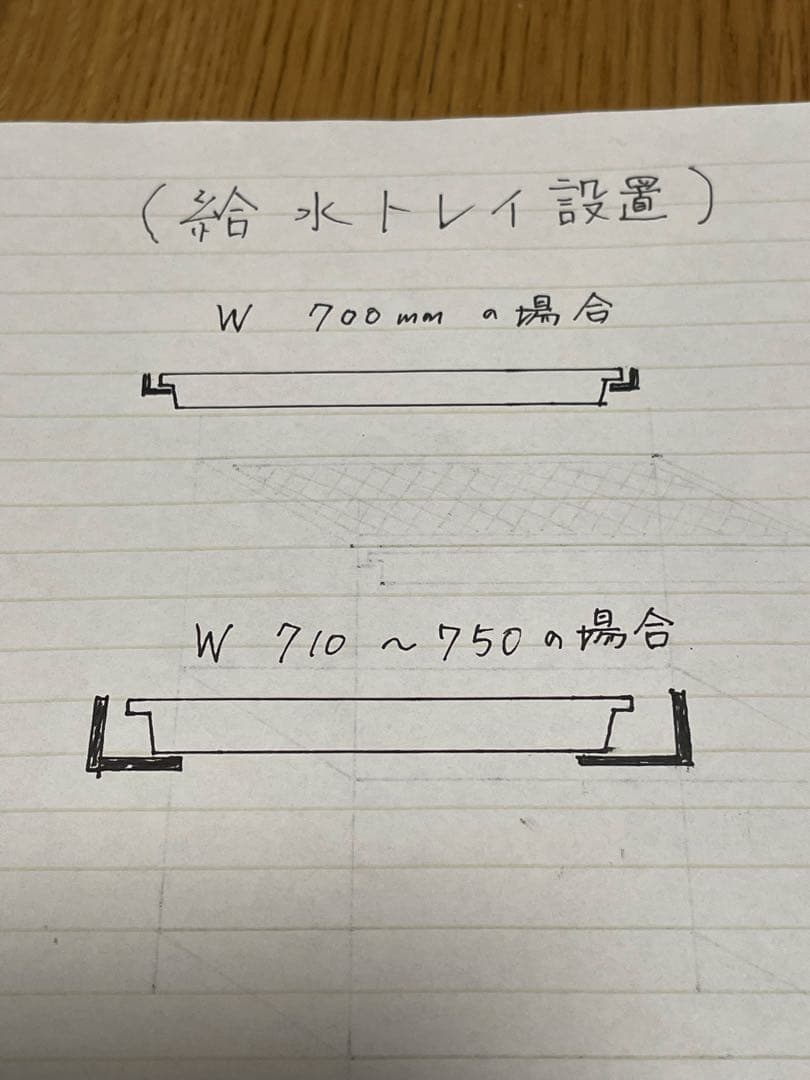 (給水トレイ設置)
W 700mm の場合
W 710 ~ 750 の場合